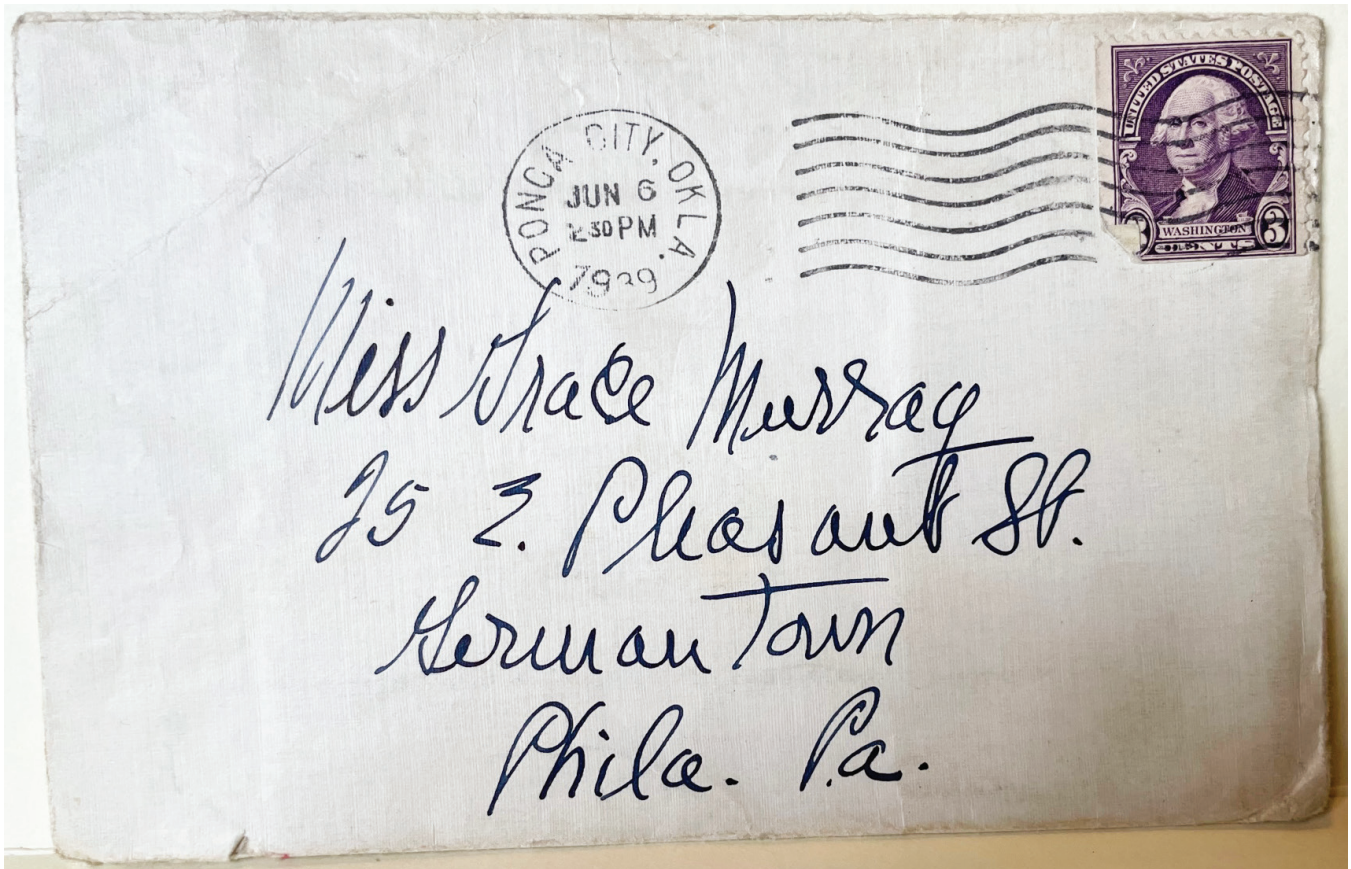 PONCA CITY, OKLA.
JUN 6
2 30 PM
1939
UNITED STATES POSTAGE
3 WASHINGTON 3
CENTS
Miss Grace Murray
25 E. Pleasant St.
GermanTown
Phila. Pa.